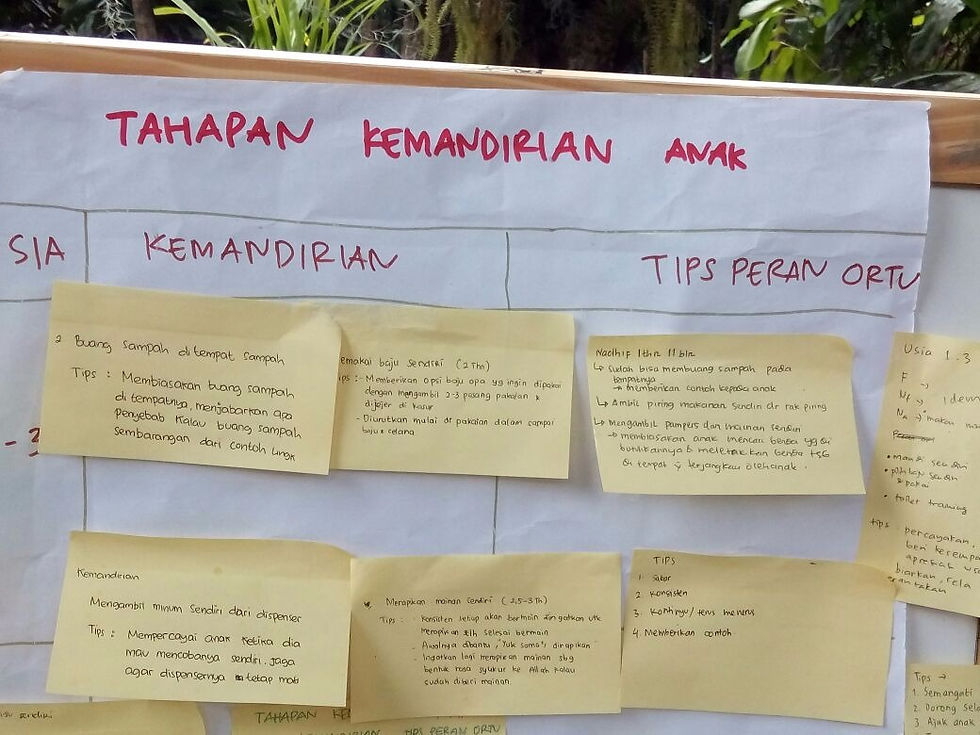 TAHAPAN KEMANDIRIAN ANAK
SIA
KEMANDIRIAN
TIPS PERAN ORTU
2 Buang sampah di tempat sampah
Tips : Membiasakan buang sampah
di tempatnya, menjabarkan apa
penyebab kalau buang sampah
sembarangan dari contoh lingk
emakai baju sendiri (2 Th)
ips : - Memberikan opsi baju apa yg ingin dipakai
dengan mengambil 2-3 pasang pakaian &
dijejer di kasur
- Diurutkan mulai dr pakaian dalam sampai
baju & celana
Nadhif 1 thn 11 bln
Sudah bisa membuang sampah pada
tempatnya
→ memberikan contoh kepada anak
Ambil piring makanan sendiri dr rak piring
Mengambil pampers dan mainan sendiri
→ membiasakan anak mencari benda yg di
butuhkannya & meletakkan benda tsb
di tempat yg terjangkau oleh anak.
Usia 1.3
F →
N →
Na → makan
• mandi sendiri
• pilihan sendiri
pakai
• toilet training
tips percayakan,
beri kesempa
apresiasi
biarkan, rela
- 3
Kemandirian
Mengambil minum sendiri dari dispenser
Tips : Mempercayai anak ketika dia
mau mencobanya sendiri, jaga
agar dispensernya tetap
Merapikan mainan sendiri (2,5-3 Th)
Tips : - Konsisten setiap akan bermain ingatkan utk
merapikan stlh selesai bermain
- Awalnya dibantu, "Yuk sama2 dirapikan"
- Ingatkan lagi merapikan mainan sbg
bentuk rasa syukur ke Allah kalau
sudah diberi mainan.
TIPS
1. Sabar
2. Konsisten
3. Kontinyu/terus menerus
4. Memberikan contoh
Tips →
1. Semangati
2. Dorong
3 Ajak anak
sendiri
TAHAPAN KE
TIPS PERAN ORTU